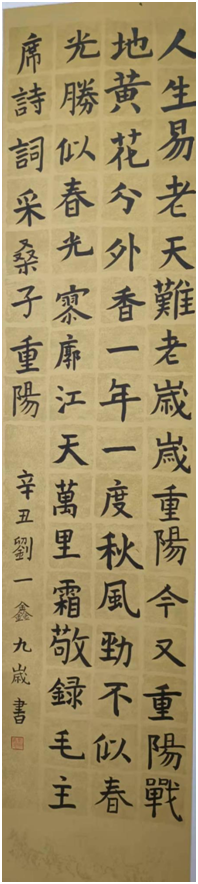 人生易老天難老歲歲重陽今又重陽戰
地黃花分外香一年一度秋風勁不似春
光勝似春光寥廓江天萬里霜敬録毛主
席詩詞采桑子重陽
辛丑劉一鑫九歲書